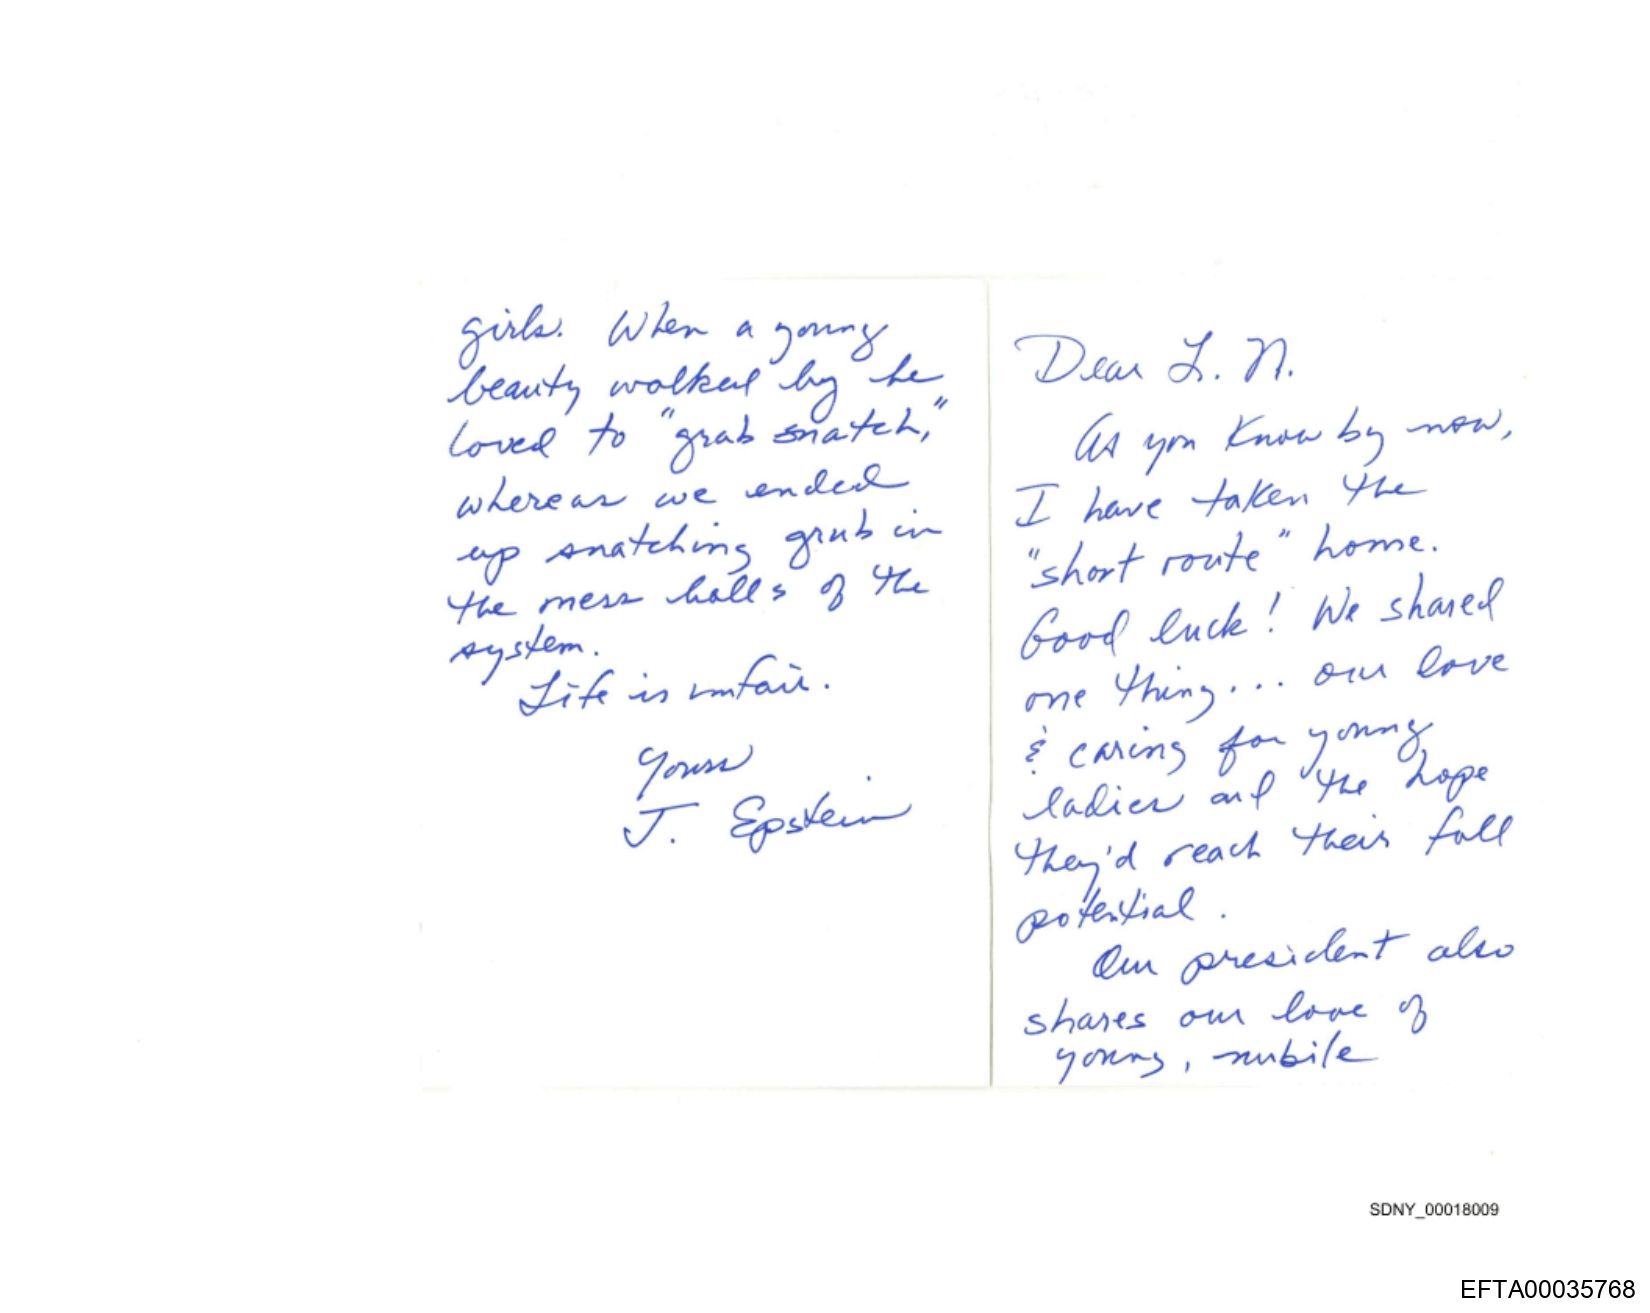 Dear L. N.
As you know by now,
I have taken the
"short route" home.
Good luck! We shared
one thing... our love
& caring for young
ladies and the hope
they'd reach their full
potential.
Our president also
shares our love of
young, nubile
girls. When a young
beauty walked by he
loved to "grab snatch,"
whereas we ended
up snatching grub in
the mess halls of the
system.
Life is unfair.
Yours
J. Epstein
SDNY_00018009
EFTA00035768